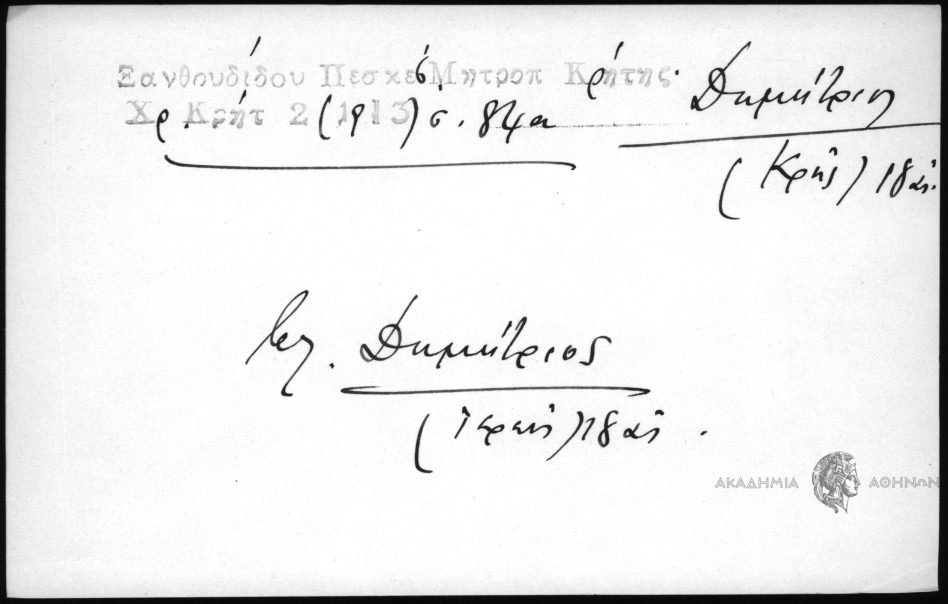 Ξανθουδίδου Πεσκέσ Μητροπ Κρήτης.
Χρ. Κρήτ 2 (1913) σ. 84α
Δημήτριος
(Κρής) 18 αἰ.
βλ. Δημήτριος
(ἱερεὺς) 18 αἰ.
ΑΚΑΔΗΜΙΑ ΑΘΗΝΩΝ